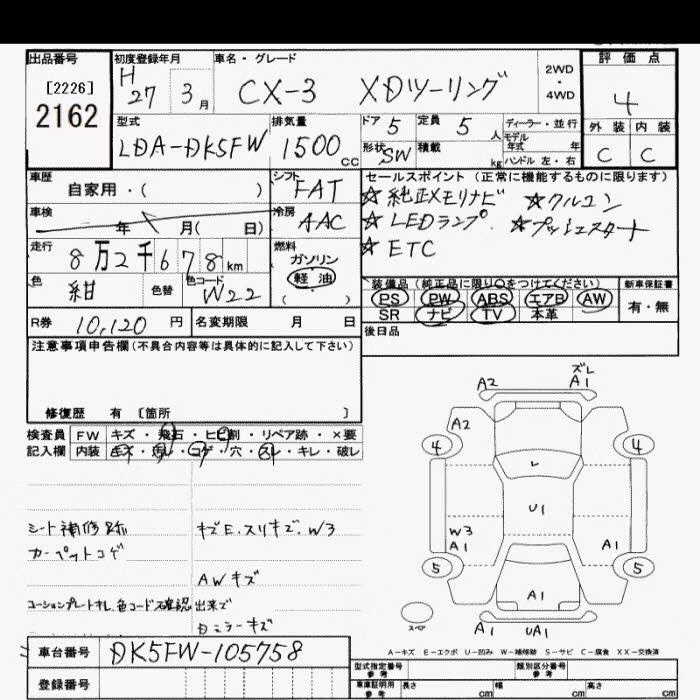 出品番号
[2226]
2162
初度登録年月
H 27 3月
車名・グレード
CX-3 XDツーリング
2WD
・
4WD
評価点
4
外装 内装
C C
型式
LDA-DK5FW
排気量
1500cc
ドア 5
定員 5人
形状 SW
積載 kg
ディーラー・並行
モデル
年式 年
ハンドル 左・右
車歴
自家用・( )
車検
年 月( 日)
走行
8万2千678km
色
紺
色替
色コード
W22
シフト
FAT
冷房
AAC
燃料
ガソリン
軽油
( )
セールスポイント(正常に機能するものに限ります)
☆純正メモリナビ ☆クルコン
☆LEDランプ ☆プッシュスタート
☆ETC
装備品(純正品に限り○をつけてください)
PS PW ABS エアB AW
SR ナビ TV 本革
新車保証書
有・無
後日品
R券 10,120円
名変期限 月 日
注意事項申告欄(不具合内容等は具体的に記入して下さい)
修復歴 有 〔箇所 〕
検査員
記入欄
FW キズ・飛石・ヒビ割・リペア跡・×要
内装 キズ・汚レ・コゲ・穴・スレ・キレ・破レ
シート補修跡
カーペットコゲ
キズE.スリキズ.W3
AWキズ
コーションプレートキレ.色コード不確認出来で
Dミラーキズ
ズレ
A2 A1
A2
4 4
L
U1
W3
A1 A1
5 5
A1
スペア
A1 UA1
A-キズ E-エクボ U-凹み W-補修跡 S-サビ C-腐食 XX-交換済
車台番号 DK5FW-105758
登録番号
型式指定番号
参考
類別区分番号
参考
車庫証明用
参考
長さ cm 幅 cm 高さ cm